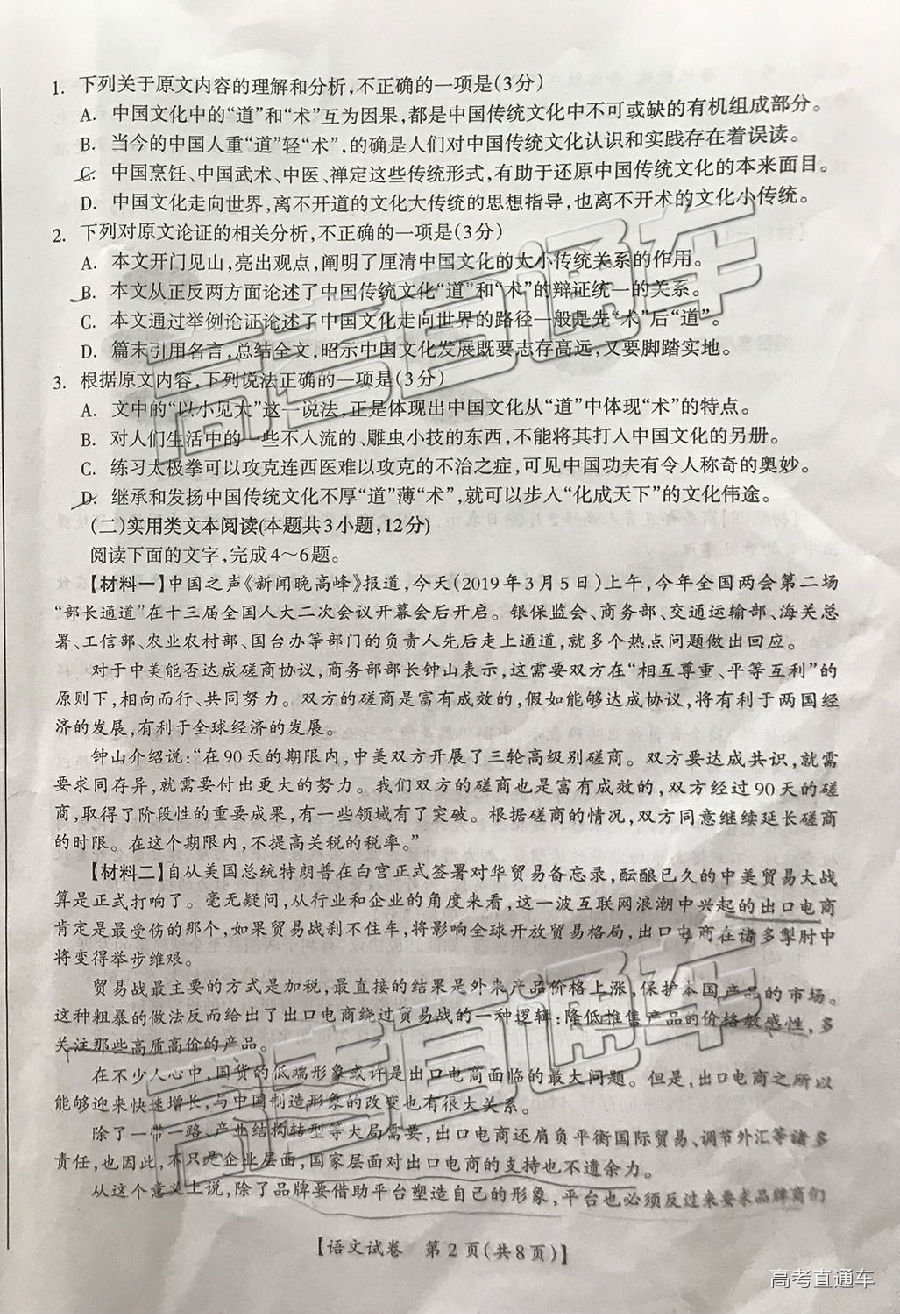 1. 下列关于原文内容的理解和分析,不正确的一项是(3分)
A. 中国文化中的“道”和“术”互为因果,都是中国传统文化中不可或缺的有机组成部分。
B. 当今的中国人重“道”轻“术”,的确是人们对中国传统文化认识和实践存在着误读。
C. 中国烹饪、中国武术、中医、禅定这些传统形式,有助于还原中国传统文化的本来面目。
D. 中国文化走向世界,离不开道的文化大传统的思想指导,也离不开术的文化小传统。
2. 下列对原文论证的相关分析,不正确的一项是(3分)
A. 本文开门见山,亮出观点,阐明了厘清中国文化的大小传统关系的作用。
B. 本文从正反两方面论述了中国传统文化“道”和“术”的辩证统一的关系。
C. 本文通过举例论证论述了中国文化走向世界的路径一般是先“术”后“道”。
D. 篇末引用名言,总结全文,昭示中国文化发展既要志存高远,又要脚踏实地。
3. 根据原文内容,下列说法正确的一项是(3分)
A. 文中的“以小见大”这一说法,正是体现出中国文化从“道”中体现“术”的特点。
B. 对人们生活中的一些不入流的、雕虫小技的东西,不能将其打入中国文化的另册。
C. 练习太极拳可以攻克连西医难以攻克的不治之症,可见中国功夫有令人称奇的奥妙。
D. 继承和发扬中国传统文化不厚“道”薄“术”,就可以步入“化成天下”的文化伟途。
(二)实用类文本阅读(本题共3小题,12分)
阅读下面的文字,完成4~6题。
【材料一】中国之声《新闻晚高峰》报道,今天(2019年3月5日)上午,今年全国两会第二场
“部长通道”在十三届全国人大二次会议开幕会后开启。银保监会、商务部、交通运输部、海关总
署、工信部、农业农村部、国台办等部门的负责人先后走上通道,就多个热点问题做出回应。
对于中美能否达成磋商协议,商务部部长钟山表示,这需要双方在“相互尊重、平等互利”的
原则下,相向而行、共同努力。双方的磋商是富有成效的,假如能够达成协议,将有利于两国经
济的发展,有利于全球经济的发展。
钟山介绍说:“在90天的期限内,中美双方开展了三轮高级别磋商。双方要达成共识,就需
要求同存异,就需要付出更大的努力。我们双方的磋商也是富有成效的,双方经过90天的磋
商,取得了阶段性的重要成果,有一些领域有了突破。根据磋商的情况,双方同意继续延长磋商
的时限。在这个期限内,不提高关税的税率。”
【材料二】自从美国总统特朗普在白宫正式签署对华贸易备忘录,酝酿已久的中美贸易大战
算是正式打响了。毫无疑问,从行业和企业的角度来看,这一波互联网浪潮中兴起的出口电商
肯定是最受伤的那个,如果贸易战刹不住车,将影响全球开放贸易格局,出口电商在诸多掣肘中
将变得举步维艰。
贸易战最主要的方式是加税,最直接的结果是外来产品价格上涨,保护本国产品的市场。
这种粗暴的做法反而给出了出口电商绕过贸易战的一种逻辑:降低推售产品的价格敏感性,多
关注那些高质高价的产品。
在不少人心中,国货的低端形象或许是出口电商面临的最大问题。但是,出口电商之所以
能够迎来快速增长,与中国制造形象的改变也有很大关系。
除了一带一路、产业结构转型等大局需要,出口电商还肩负平衡国际贸易、调节外汇等诸多
责任,也因此,不只是企业层面,国家层面对出口电商的支持也不遗余力。
从这个意义上说,除了品牌要借助平台塑造自己的形象,平台也必须反过来要求品牌商们
【语文试卷 第2页(共8页)】
高考直通车
高考直通车
高考直通车